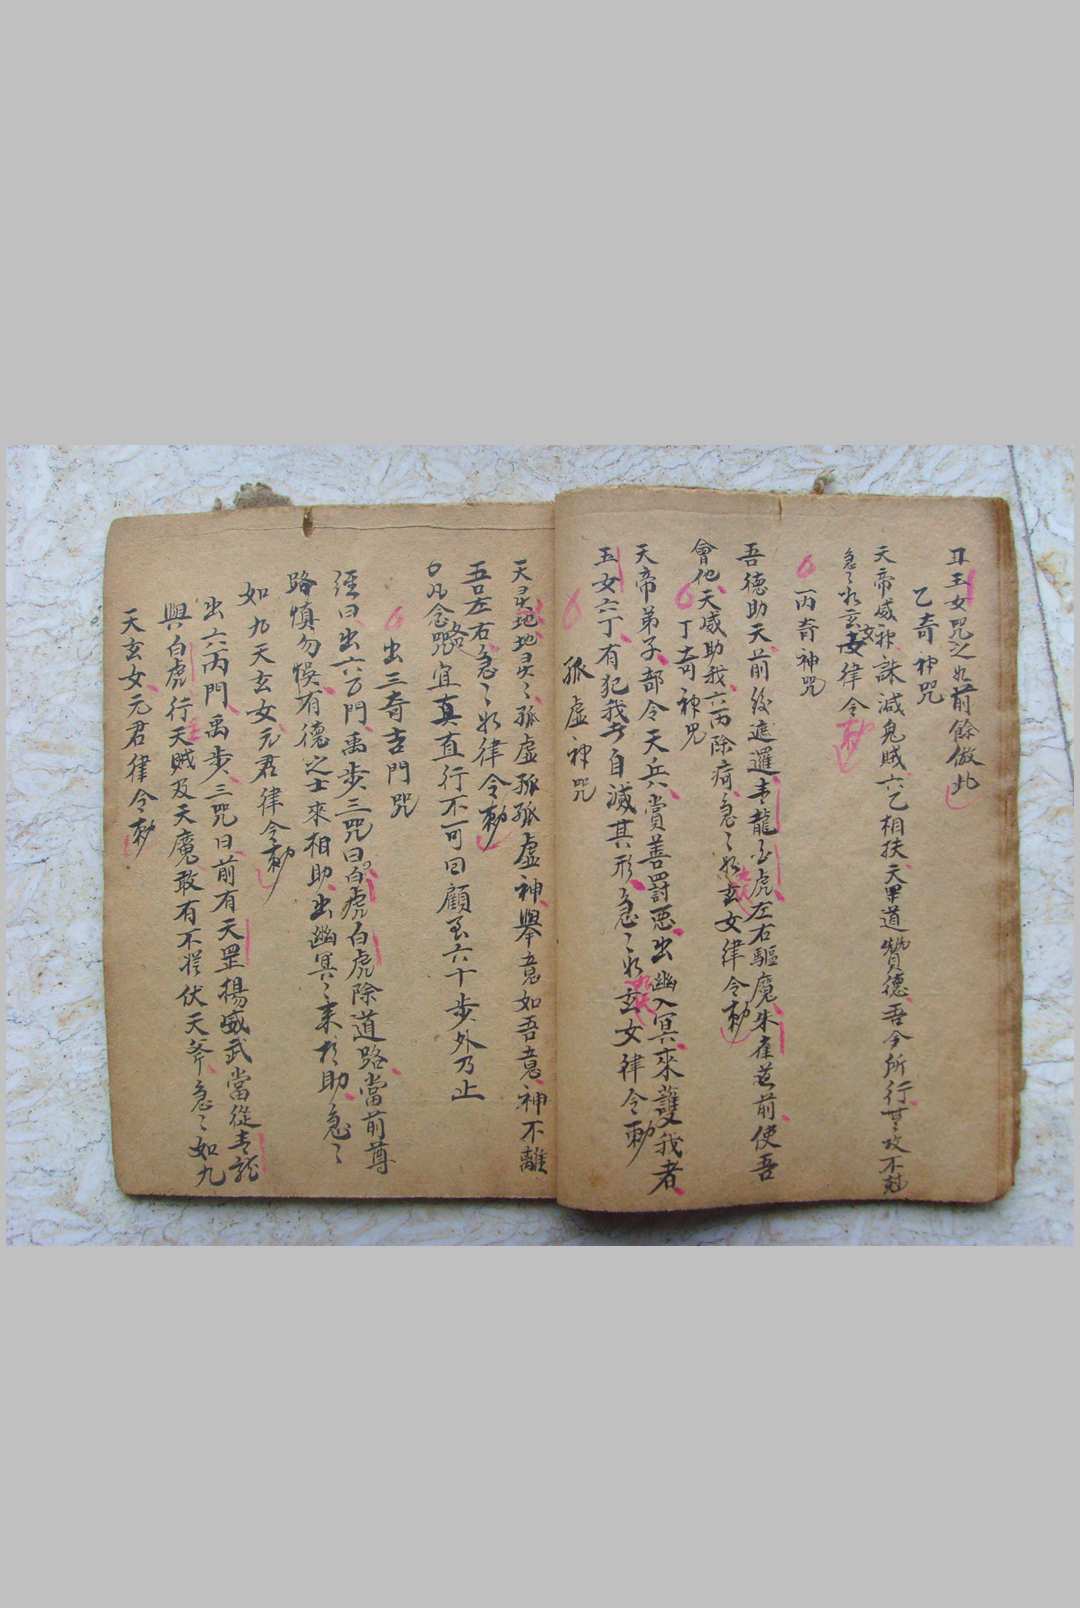 耳玉女咒之如前餘倣此
乙奇神咒
天帝威神誅減鬼賊六乙相扶天罡道贊德吾今所行其攻不尅
急〻如玄女律令勅
丙奇神咒
吾德助天前後遮邏青龍白虎左右驅魔朱雀前使吾
會他天威助我六丙除疴急〻如九天玄女律令勅
丁奇神咒
天帝弟子部令天兵賞善罰惡出幽入冥來護我者
玉女六丁有犯我者自滅其形急〻如九天玄女律令勅
孤虛神咒
天灵地地灵〻孤虛孤孤虛神舉意如吾意神不離
吾左右急〻如律令勅
凡念咒畧宜真直行不可回顧至六十步外乃止
出三奇吉門咒
徑曰出六乙門禹步三咒曰白虎白虎除道路當前尊
路慎勿悞有德之士來相助出幽冥〻來相助急〻
如九天玄女元君律令勅
出六丙門禹步三咒曰前有天罡楊威武當從青龍
與白虎行天賊及天魔敢有不從伏天斧急〻如九
天玄女元君律令勅